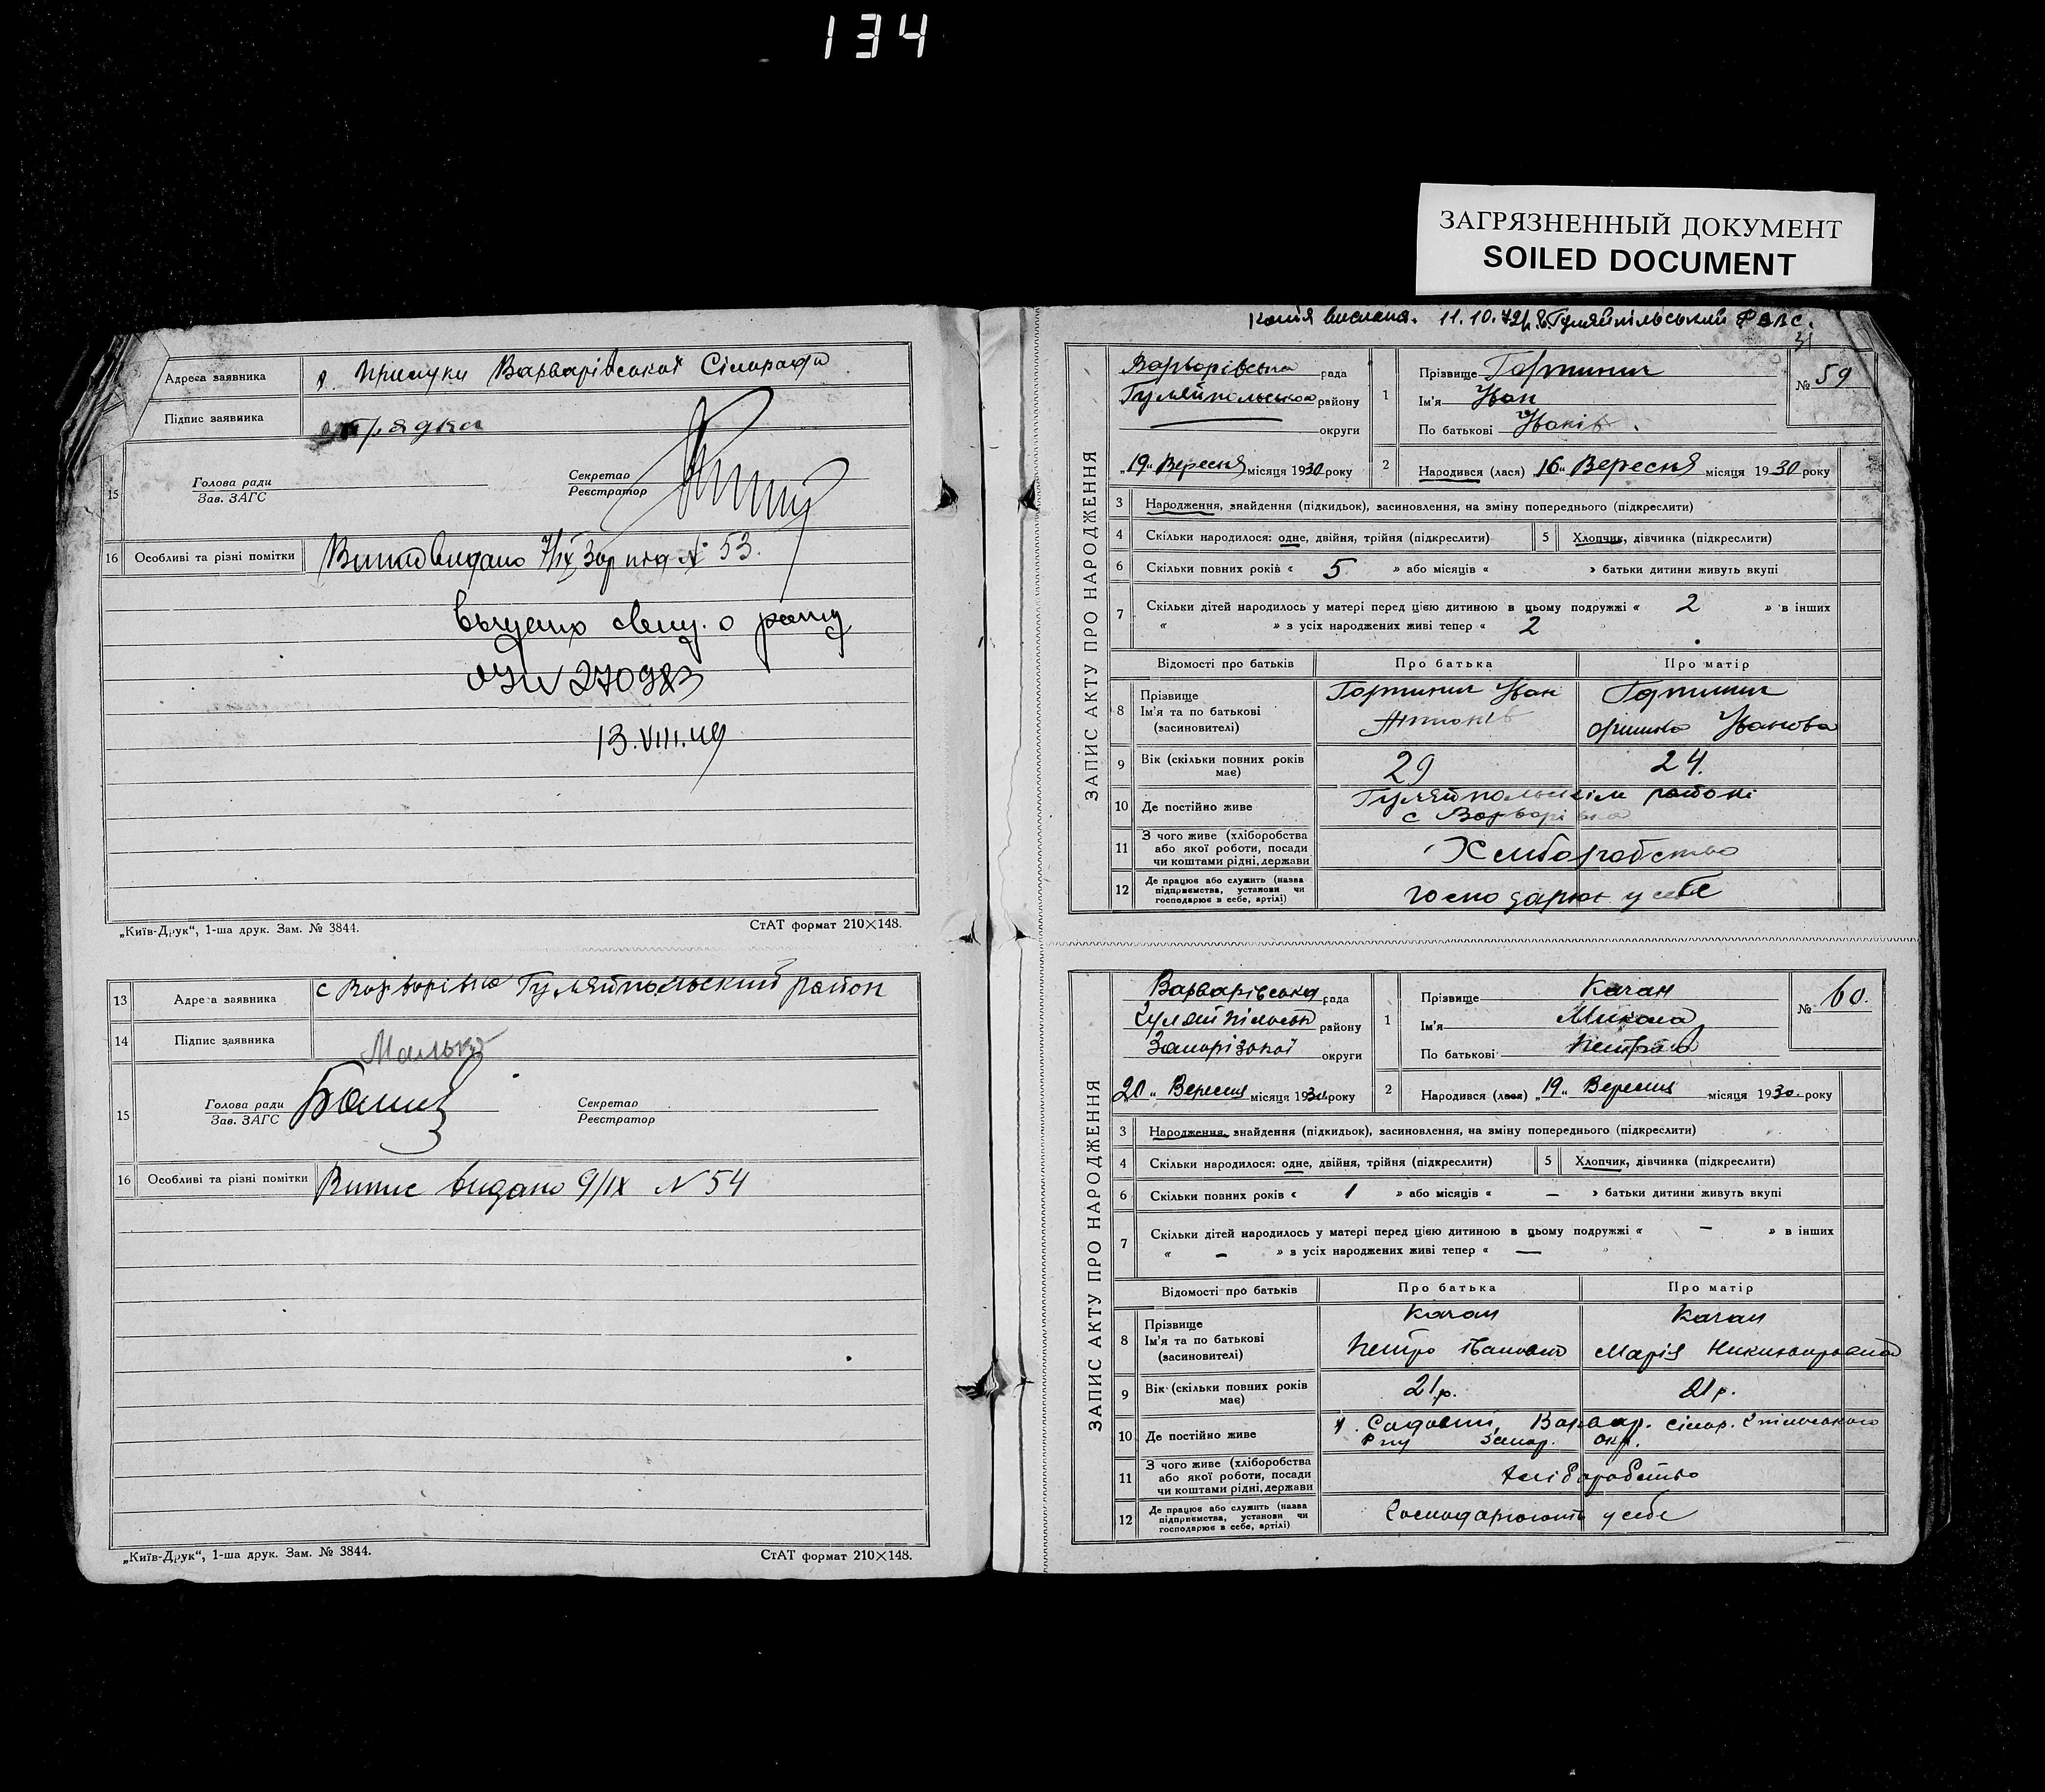 134
ЗАГРЯЗНЕННЫЙ ДОКУМЕНТ
SOILED DOCUMENT
Адреса заявника Варварівської Сільради
Підпис заявника
15 Голова ради
Зав. ЗАГС
Секретар
Реєстратор
16 Особливі та різні помітки видано № 53.
о
270983
13.VIII.49
„Київ-Друк“, 1-ша друк. Зам. № 3844. СтАТ формат 210×148.
13 Адреса заявника с Варворівка Гуляйпольский район
14 Підпис заявника
15 Голова ради
Зав. ЗАГС
Секретар
Реєстратор
16 Особливі та різні помітки Випис видано 9/IX N 54
„Київ-Друк“, 1-ша друк. Зам. № 3844. СтАТ формат 210×148.
копія вислана. 11.10.72р. в Гуляйпільський
31
ЗАПИС АКТУ ПРО НАРОДЖЕННЯ
Варворівська рада
Гуляйпольського району
округи
„19“ Вересня місяця 1930 року
1 Прізвище
Ім'я Іван
По батькові Іванів
№ 59
2 Народився (лася) „16“ Вересня місяця 1930 року
3 Народження, знайдення (підкидьок), засиновлення, на зміну попереднього (підкреслити)
4 Скільки народилося: одне, двійня, трійня (підкреслити) 5 Хлопчик, дівчинка (підкреслити)
6 Скільки повних років « 5 » або місяців « » батьки дитини живуть вкупі
7 Скільки дітей народилось у матері перед цією дитиною в цьому подружжі « 2 » в інших
« » з усіх народжених живі тепер « 2
Відомості про батьків Про батька Про матір
8 Прізвище
Ім'я та по батькові
(засиновителі)
Іван
Іванова
9 Вік (скільки повних років має) 29 24.
10 Де постійно живе Гуляйпольськім районі
с Варворівка
11 З чого живе (хліборобства
або якої роботи, посади
чи коштами рідні, держави Хліборобство
12 Де працює або служить (назва
підприємства, установи чи
господарює в себе, артілі) господарює у себе
ЗАПИС АКТУ ПРО НАРОДЖЕННЯ
Варварівська рада
району
Запорізької округи
20 „ Вересня місяця 1930 року
1 Прізвище Качан
Ім'я Микола
По батькові
№ 60.
2 Народився (лася) „19“ Вересня місяця 1930. року
3 Народження, знайдення (підкидьок), засиновлення, на зміну попереднього (підкреслити)
4 Скільки народилося: одне, двійня, трійня (підкреслити) 5 Хлопчик, дівчинка (підкреслити)
6 Скільки повних років « 1 » або місяців « — » батьки дитини живуть вкупі
7 Скільки дітей народилось у матері перед цією дитиною в цьому подружжі « — » в інших
« — » з усіх народжених живі тепер « —
Відомості про батьків Про батька Про матір
8 Прізвище
Ім'я та по батькові
(засиновителі)
Качан Качан
Петро Марія
9 Вік (скільки повних років має) 21р. 21р.
10 Де постійно живе Варвар. сільр.
Запор. окр.
11 З чого живе (хліборобства
або якої роботи, посади
чи коштами рідні, держави хліборобство
12 Де працює або служить (назва
підприємства, установи чи
господарює в себе, артілі) Господарюють у себе